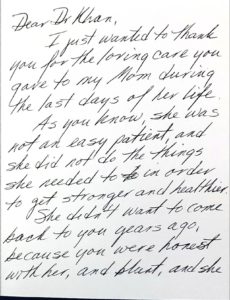 Dear Dr Khan,
I just wanted to thank
you for the loving care you
gave to my Mom during
the last days of her life.
As you know, she was
not an easy patient, and
she did not do the things
she needed to in order
to get stronger and healthier.
She didn't want to come
back to you years ago,
because you were honest
with her, and blunt, and she